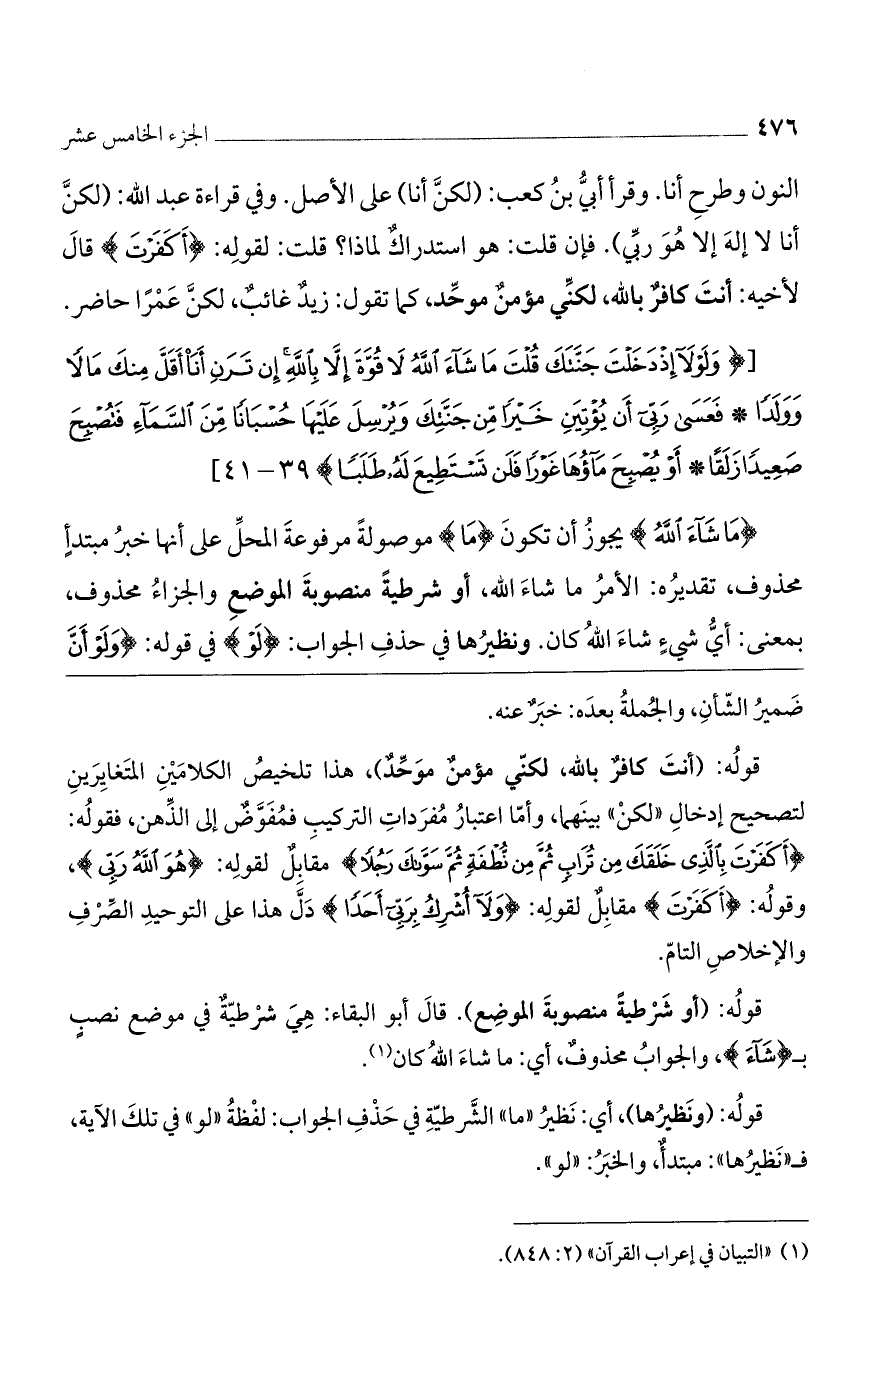 ٤٧٦ الجزء الخامس عشر
النون وطرحِ أنا. وقرأ أبيُّ بنُ كعب: (لكنَّ أنا) على الأصل. وفي قراءة عبد الله: (لكنَّ
أنا لا إلهَ إلا هُوَ ربِّي). فإن قلت: هو استدراكٌ لماذا؟ قلت: لقولِه: ﴿أَكَفَرْتَ﴾ قالَ
لأخيه: أنتَ كافرٌ بالله، لكنِّي مؤمنٌ موحِّد، كما تقول: زيدٌ غائبٌ، لكنَّ عَمْرًا حاضر.
[﴿وَلَوْلَآ إِذْ دَخَلْتَ جَنَّتَكَ قُلْتَ مَا شَآءَ ٱللَّهُ لَا قُوَّةَ إِلَّا بِٱللَّهِ ۚ إِن تَرَنِ أَنَا۠ أَقَلَّ مِنكَ مَالًا
وَوَلَدًا * فَعَسَىٰ رَبِّىٓ أَن يُؤْتِيَنِ خَيْرًا مِّن جَنَّتِكَ وَيُرْسِلَ عَلَيْهَا حُسْبَانًا مِّنَ ٱلسَّمَآءِ فَتُصْبِحَ
صَعِيدًا زَلَقًا * أَوْ يُصْبِحَ مَآؤُهَا غَوْرًا فَلَن تَسْتَطِيعَ لَهُۥ طَلَبًا﴾ ٣٩ – ٤١]
﴿مَا شَآءَ ٱللَّهُ﴾ يجوزُ أن تكونَ ﴿مَا﴾ موصولةً مرفوعةَ المحلِّ على أنها خبرُ مبتدأٍ
محذوف، تقديرُه: الأمرُ ما شاءَ الله، أو شرطيةً منصوبةَ الموضع والجزاءُ محذوف،
بمعنى: أيُّ شيءٍ شاءَ اللهُ كان. ونظيرُها في حذفِ الجواب: ﴿لَوْ﴾ في قوله: ﴿وَلَوْ أَنَّ
ضَميرُ الشّأنِ، والجُملةُ بعدَه: خبَرٌ عنه.
قولُه: (أنتَ كافرٌ بالله، لكنّي مؤمنٌ موَحِّدٌ)، هذا تلخيصُ الكلامَيْنِ المتَغايِرَينِ
لتصحيح إدخالِ «لكنْ» بينَهما، وأمّا اعتبارُ مُفرَداتِ التركيبِ فمُفَوَّضٌ إلى الذِّهن، فقولُه:
﴿أَكَفَرْتَ بِٱلَّذِى خَلَقَكَ مِن تُرَابٍ ثُمَّ مِن نُّطْفَةٍ ثُمَّ سَوَّىٰكَ رَجُلًا﴾ مقابلٌ لقولِه: ﴿هُوَ ٱللَّهُ رَبِّى﴾،
وقولُه: ﴿أَكَفَرْتَ﴾ مقابلٌ لقولِه: ﴿وَلَآ أُشْرِكُ بِرَبِّىٓ أَحَدًا﴾ دَلَّ هذا على التوحيدِ الصِّرْفِ
والإخلاصِ التامّ.
قولُه: (أو شَرْطيةً منصوبةَ الموضِع). قالَ أبو البقاء: هِيَ شَرْطيّةٌ في موضع نصبٍ
بـ﴿شَآءَ﴾، والجوابُ محذوفٌ، أي: ما شاءَ اللهُ كان(١).
قولُه: (ونَظيرُها)، أي: نَظيرُ «ما» الشَّرطيّةِ في حَذْفِ الجواب: لفْظةُ «لو» في تلكَ الآية،
فـ«نَظيرُها»: مبتدأٌ، والخبَرُ: «لو».
(١) «التبيان في إعراب القرآن» (٢: ٨٤٨).